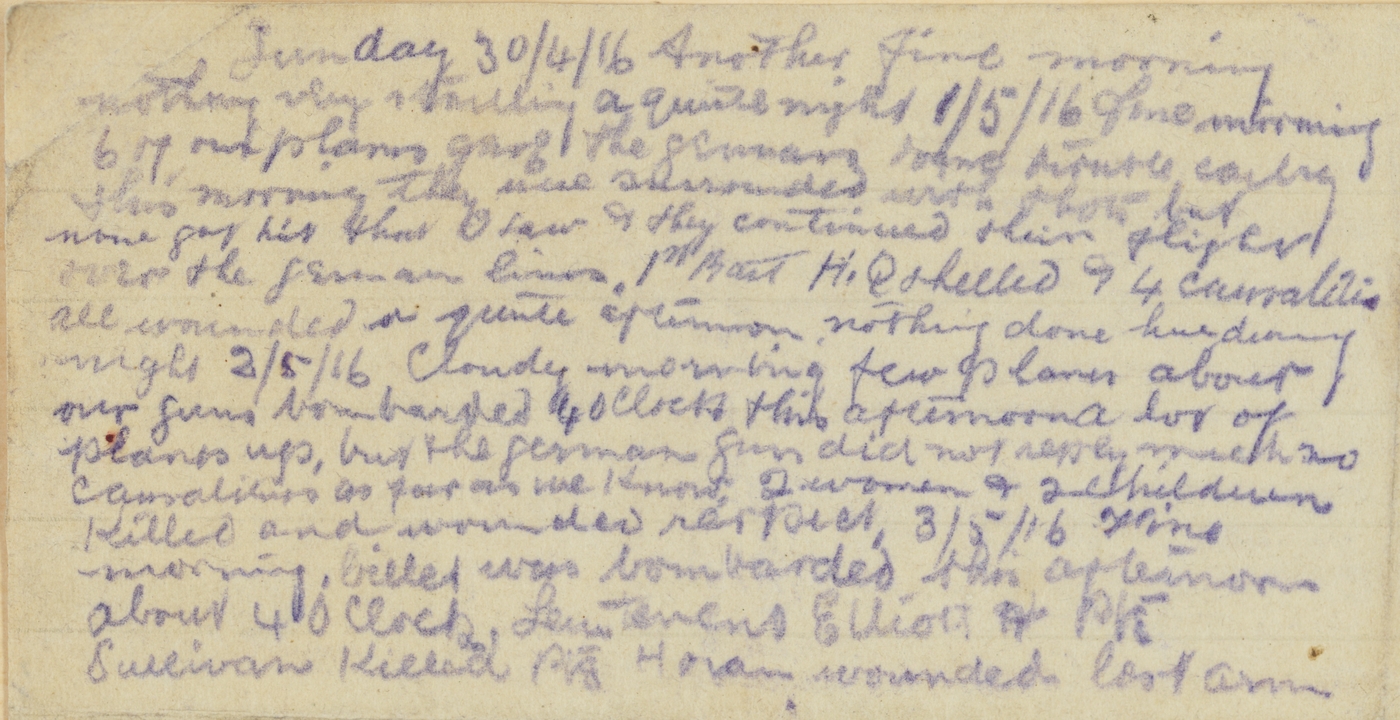 Sunday 30/4/16 Another fine morning
nothing very startling a quite night 1/5/16 fine morning
6 of our planes gave the germans some trouble early
this morning they were surrounded with shots but
none got hit that I saw & they continued thier flight
over the german lines, 1st Batt H.Q shelled & 4 causalities
all wounded a quite afternoon, nothing done here during
night 2/5/16 Cloudy morning few planes about
our guns bombarded 4 OClock this afternoon a lot of
planes up, but the german guns did not reply much no
causalities as far as we know, 2 women & 2 children
killed and wounded respect, 3/5/16 Fine
morning, billet was bombarded this afternoon
about 4 OClock, Leutenent Elliott & Pte
Sullivan Killed Pte Horan wounded lost arm